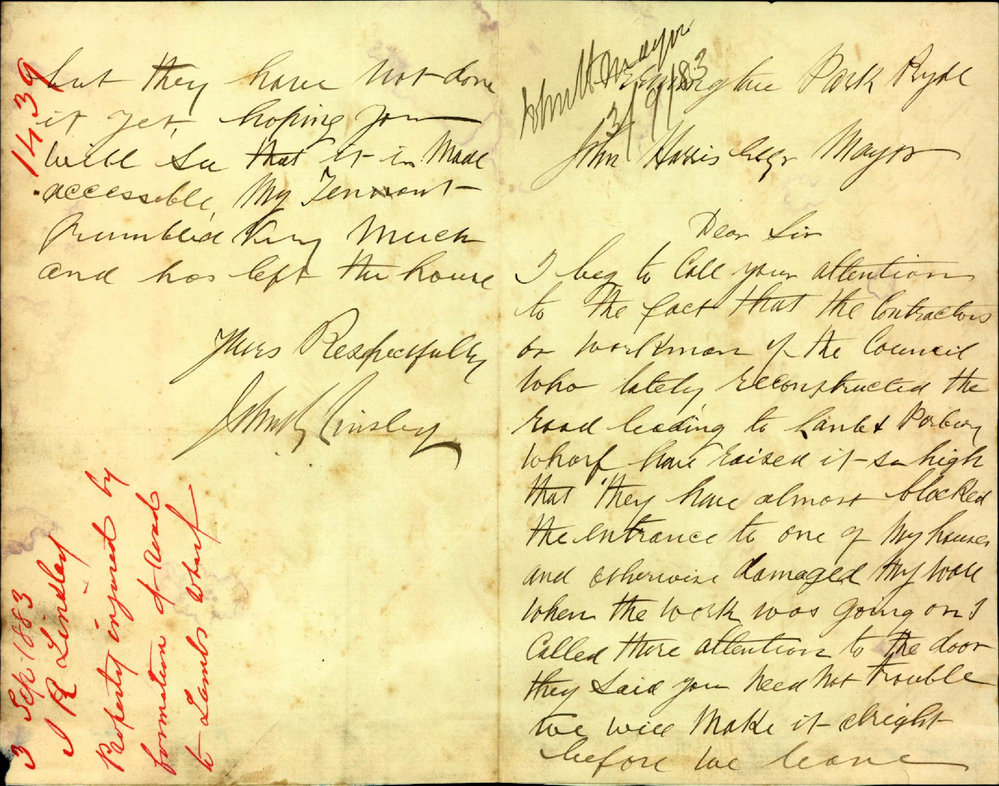 John H Mayor
3/9/83
Park Ryde
John Harris Esqr Mayor
Dear Sir
I beg to Call your attention
to the fact that the Contractors
or workman of the Council
who lately reconstructed the
road leading to Lambs
Wharf have raised it so high
that they have almost blocked
the entrance to one of My houses
and otherwise damaged My Wall
When the work was going on I
Called there attention to the door
they said you Need Not trouble
We will Make it alright
before we leave
but they have Not done
it yet, hoping you
will see that it is Made
accessible, My Tennant
Grumbled Very Much
and has left the house
Yours Respectfully
John R Linsley
1439
3 Sep 1883
J R Linsley
Property injured by
formation of road
to Lambs Wharf